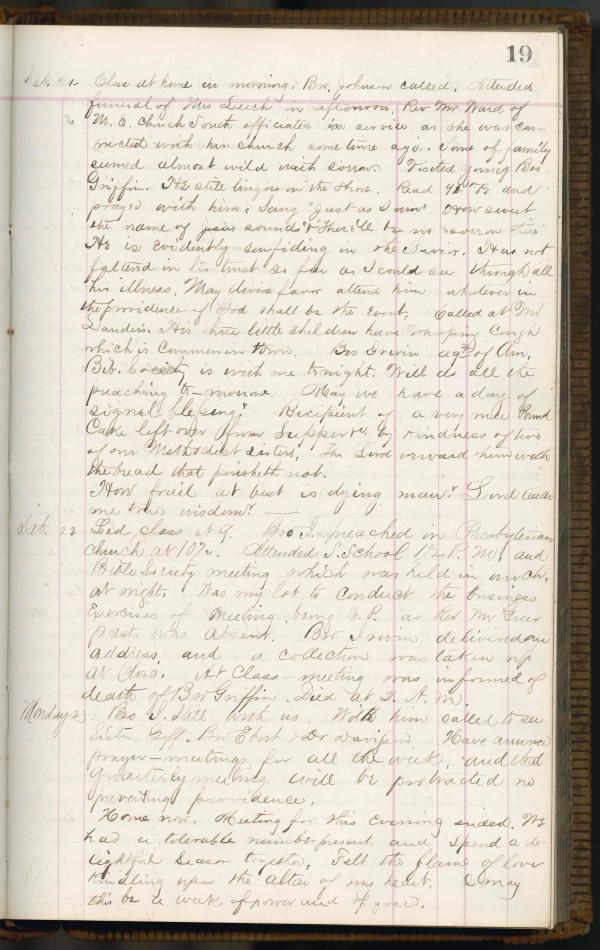 19
Sat. 21 Close at home in morning. Bro. Johnson called. Attended
funeral of Mrs Leech in afternoon, Rev Mr Ward of
M. E. Church South officiated in service as she was con-
nected with him church some time ago. Some of family
seemed almost wild with sorrow. Visited young Bro
Griffin. He still lingers on the shore. Read Ps and
prayed with him, Sang "Just as I am" "How sweet
the name of Jesus sounds" & "There'll be no sorrow there"
He is evidently confiding in the Savior. Has not
faltered in his trust so far as I could see through all
his illness. May divine favor attend him whatever in
the providence of God shall be the event. Called at Mr
Sanders. His three little children have whooping Cough
which is common in town. Bro Erwin agt. of Am.
Bib. Society is with me tonight. Will do all the
preaching to-morrow. May we have a day of
signal blessing. Recipient of a very nice Pound
Cake left over from Supper by kindness of two
of our Methodist sisters, The Lord reward them with
the bread that perisheth not.
How frail at best is dying man! Lord teach
me true wisdom.
Sab. 22 Led class at 9. Bro I. preached in Presbyterian
church at 10½. Attended S. School 1½ P. M. and
Bible Society meeting which was held in our ch.
at night. Was my lot to conduct the business
Exercises of meeting, being V. P. as Rev Mr Greer
prest. was absent. Bro Irwin delivered an
address and a collection was taken up
at close. At Class-meeting was informed of
death of Bro Griffin. Died at 2. A. M.
Monday 23 Bro I. still with us. With him called to see
Sister Goff. Bro Ebert & Dr Davison. Have announced
prayer-meetings for all the week, and that
Quarterly meeting will be protracted no
preventing providence.
Home now. Meeting for this evening ended. We
had a tolerable number present and spend a de-
lightful season together. Felt the flame of love
kindling upon the altar of my heart. O may
this be a week of power and of grace.